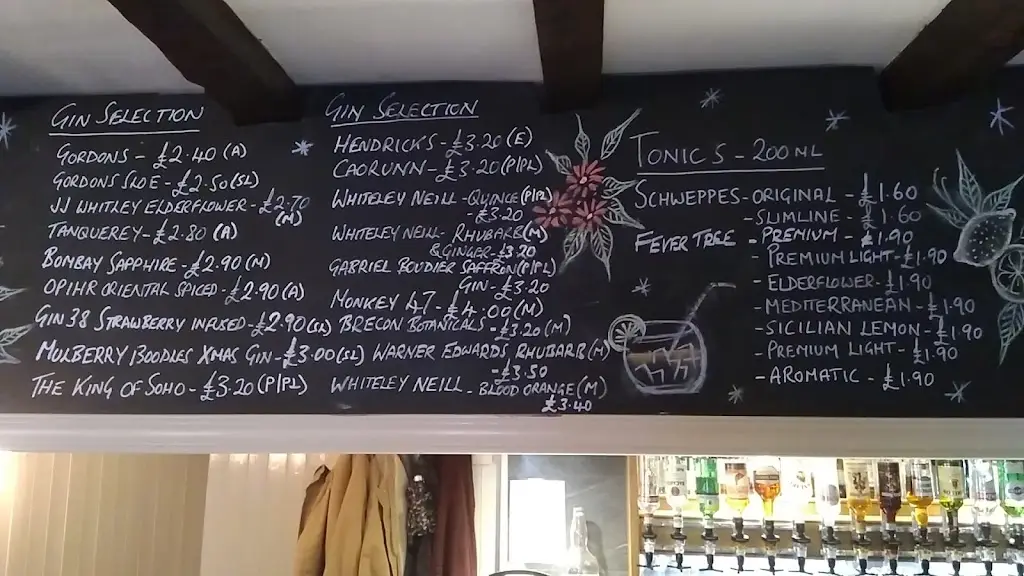 GIN SELECTION
GORDONS - £2.40 (A)
GORDONS SLOE - £2.50 (SL)
JJ WHITLEY ELDERFLOWER - £2.70
(M)
TANQUEREY - £2.80 (A)
BOMBAY SAPPHIRE - £2.90 (M)
OPIHR ORIENTAL SPICED - £2.90 (A)
GIN 38 STRAWBERRY INFUSED - £2.90 (SL)
MULBERRY BOODLES XMAS GIN - £3.00 (SL)
THE KING OF SOHO - £3.20 (P|PL)
GIN SELECTION
HENDRICKS - £3.20 (E)
CAORUNN - £3.20 (P|PL)
WHITELEY NEILL - QUINCE (P|PL)
- £3.20
WHITELEY NEILL - RHUBARB (M)
& GINGER - £3.20
GABRIEL BOUDIER SAFFRON (P|PL)
GIN - £3.20
MONKEY 47 - £4.00 (M)
BRECON BOTANICALS - £3.20 (M)
WARNER EDWARDS RHUBARB (M)
- £3.50
WHITELEY NEILL - BLOOD ORANGE (M)
£3.40
TONICS - 200ML
SCHWEPPES - ORIGINAL - £1.60
- SLIMLINE - £1.60
FEVER TREE - PREMIUM - £1.90
- PREMIUM LIGHT - £1.90
- ELDERFLOWER - £1.90
- MEDITERRANEAN - £1.90
- SICILIAN LEMON - £1.90
- PREMIUM LIGHT - £1.90
- AROMATIC - £1.90